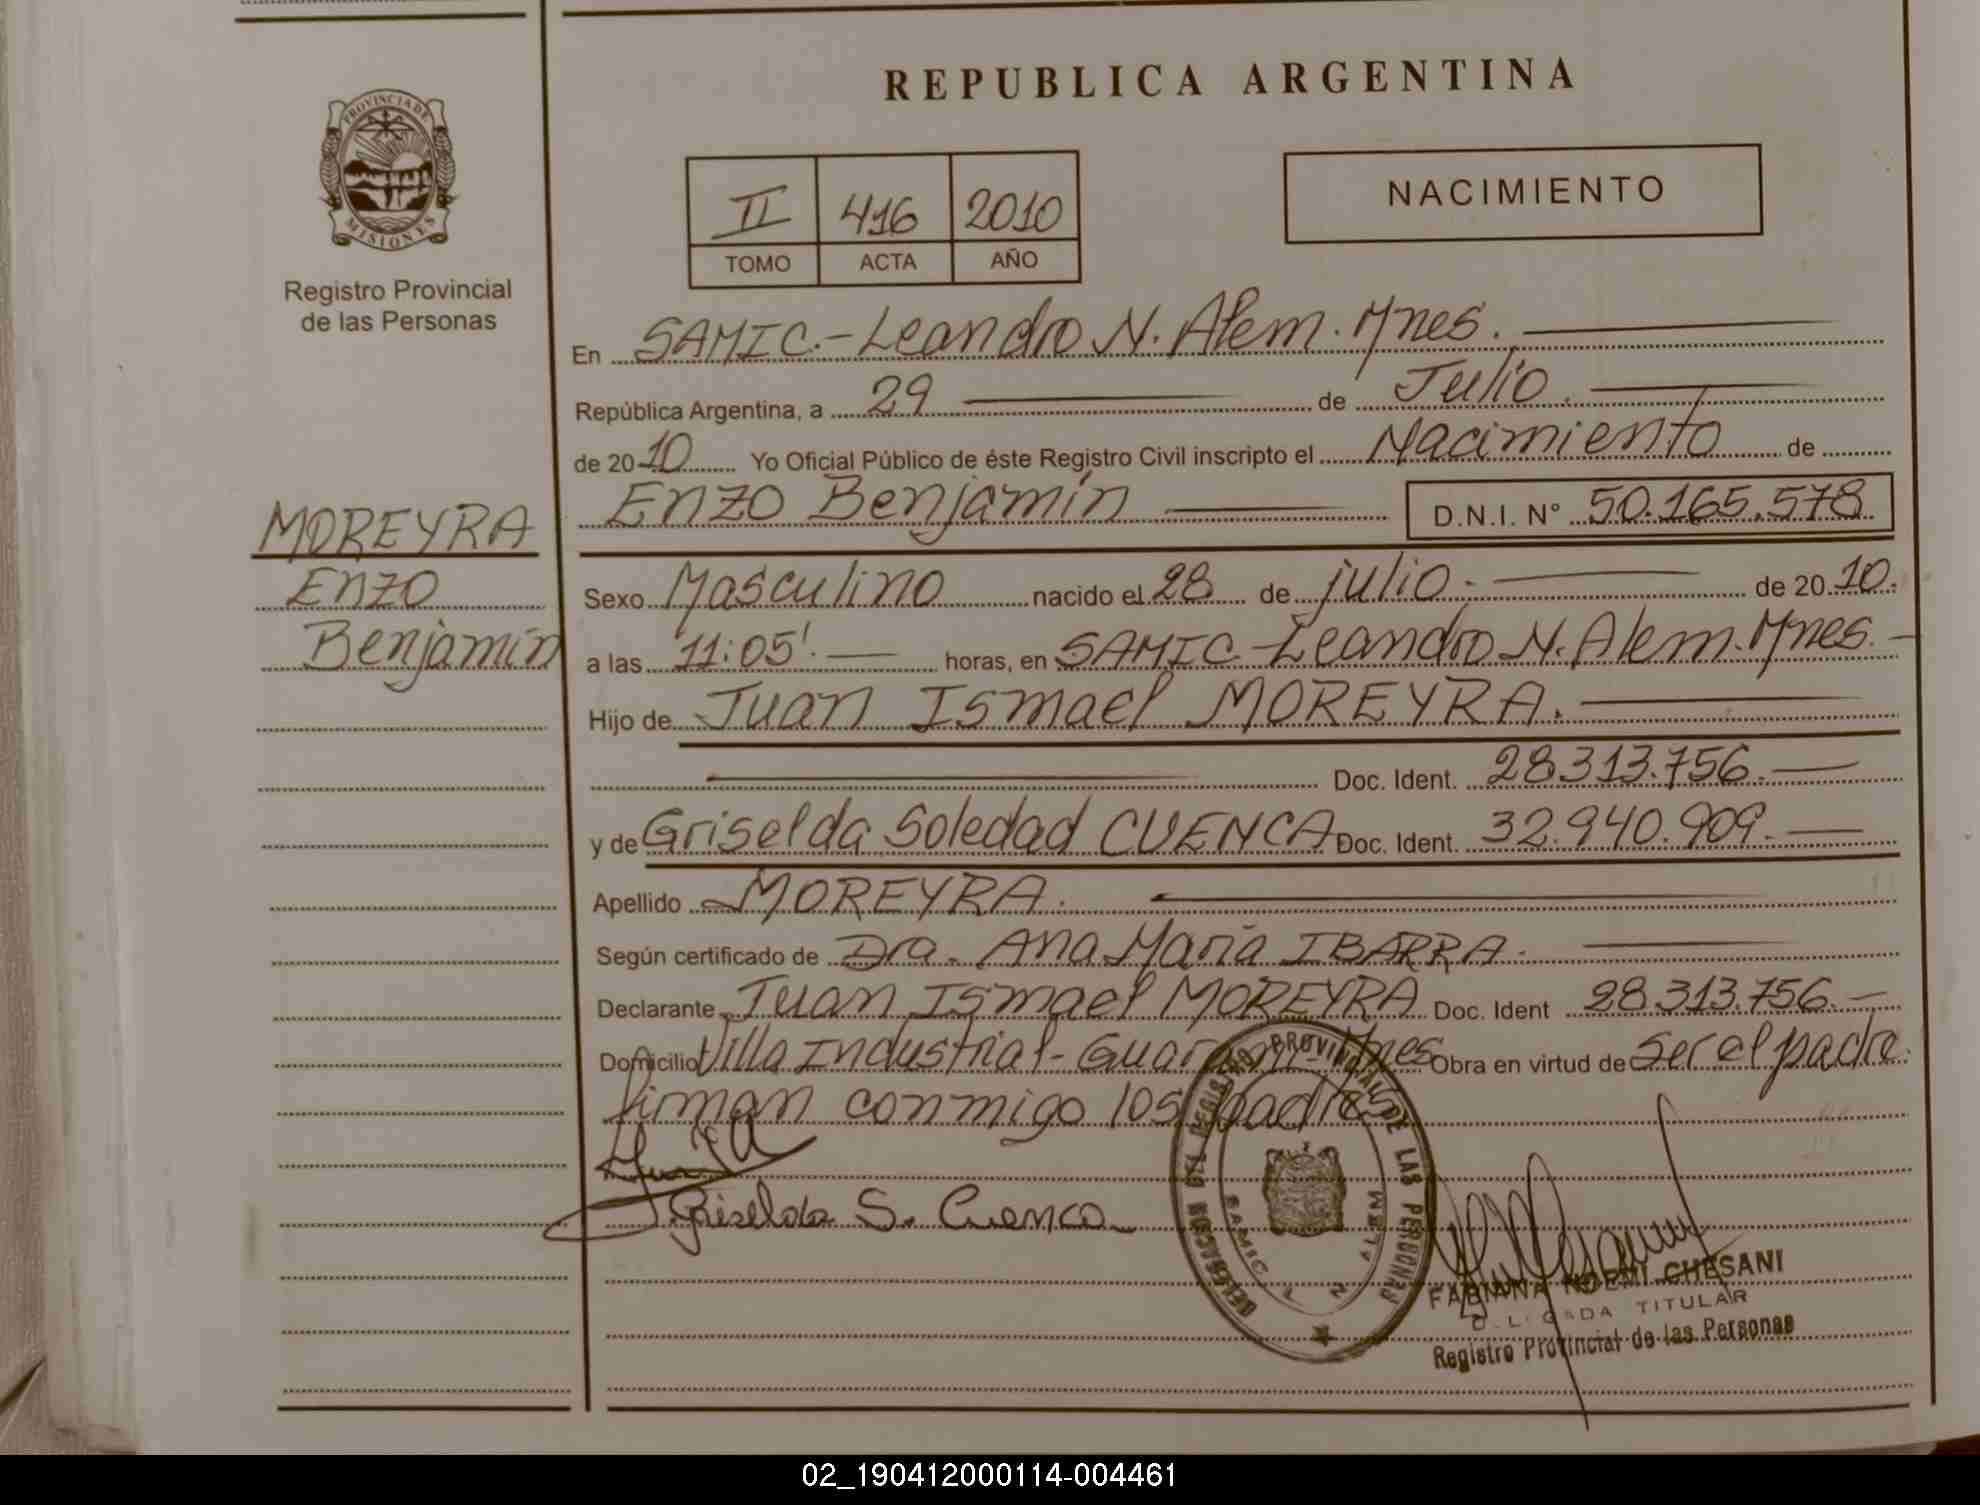 REPUBLICA ARGENTINA
PROVINCIA DE
MISIONES
Registro Provincial
de las Personas
II 416 2010
TOMO ACTA AÑO
NACIMIENTO
En SAMIC.-Leandro N. Alem. Mnes.
República Argentina, a 29 de Julio.
de 2010 Yo Oficial Público de éste Registro Civil inscripto el Nacimiento de
Enzo Benjamín D.N.I. Nº 50.165.578
MOREYRA
Enzo
Benjamín
Sexo Masculino nacido el 28 de julio. de 2010.
a las 11:05'. horas, en SAMIC-Leandro N. Alem. Mnes.
Hijo de Juan Ismael MOREYRA.
Doc. Ident. 28.313.756.
y de Griselda Soledad CUENCA Doc. Ident. 32.940.909.
Apellido MOREYRA.
Según certificado de Dra. Ana María IBARRA.
Declarante Juan Ismael MOREYRA Doc. Ident 28.313.756.
Domicilio Villa Industrial-Guaraní-Mnes Obra en virtud de Ser el padre.
firman conmigo los padres
Griselda S. Cuenca
DELEGACION DEL REGISTRO PROVINCIAL DE LAS PERSONAS
SAMIC L N ALEM
FABIANA NOEMI CHESANI
DELEGADA TITULAR
Registro Provincial de las Personas
02_190412000114-004461